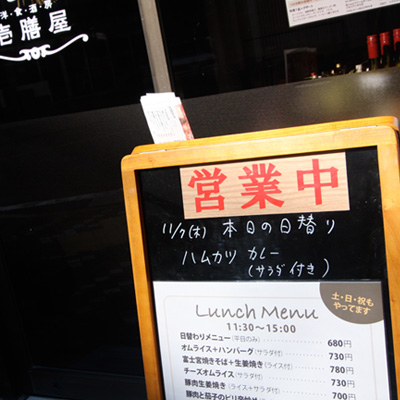 洋・食・酒・房
壱膳屋
営業中
11/7(木) 本日の日替り
ハムカツ カレー
(サラダ付き)
Lunch Menu
11:30〜15:00
土・日・祝も
やってます
日替わりメニュー(平日のみ) 680円
オムライス+ハンバーグ(サラダ付) 730円
富士宮焼きそば+生姜焼き(ライス付) 780円
チーズオムライス(サラダ付) 730円
豚肉生姜焼き(ライス+サラダ付) 700円
豚肉と茄子のピリ辛